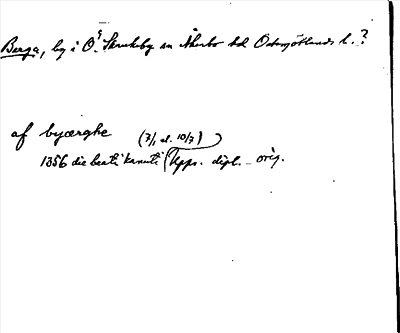 Berga, by i Ö. Skrukeby sn Åkerbo hd Östergötlands l.?
af byærghe (7/1 el. 10/7)
1356 die beati kanuti (Upps. dipl. orig.